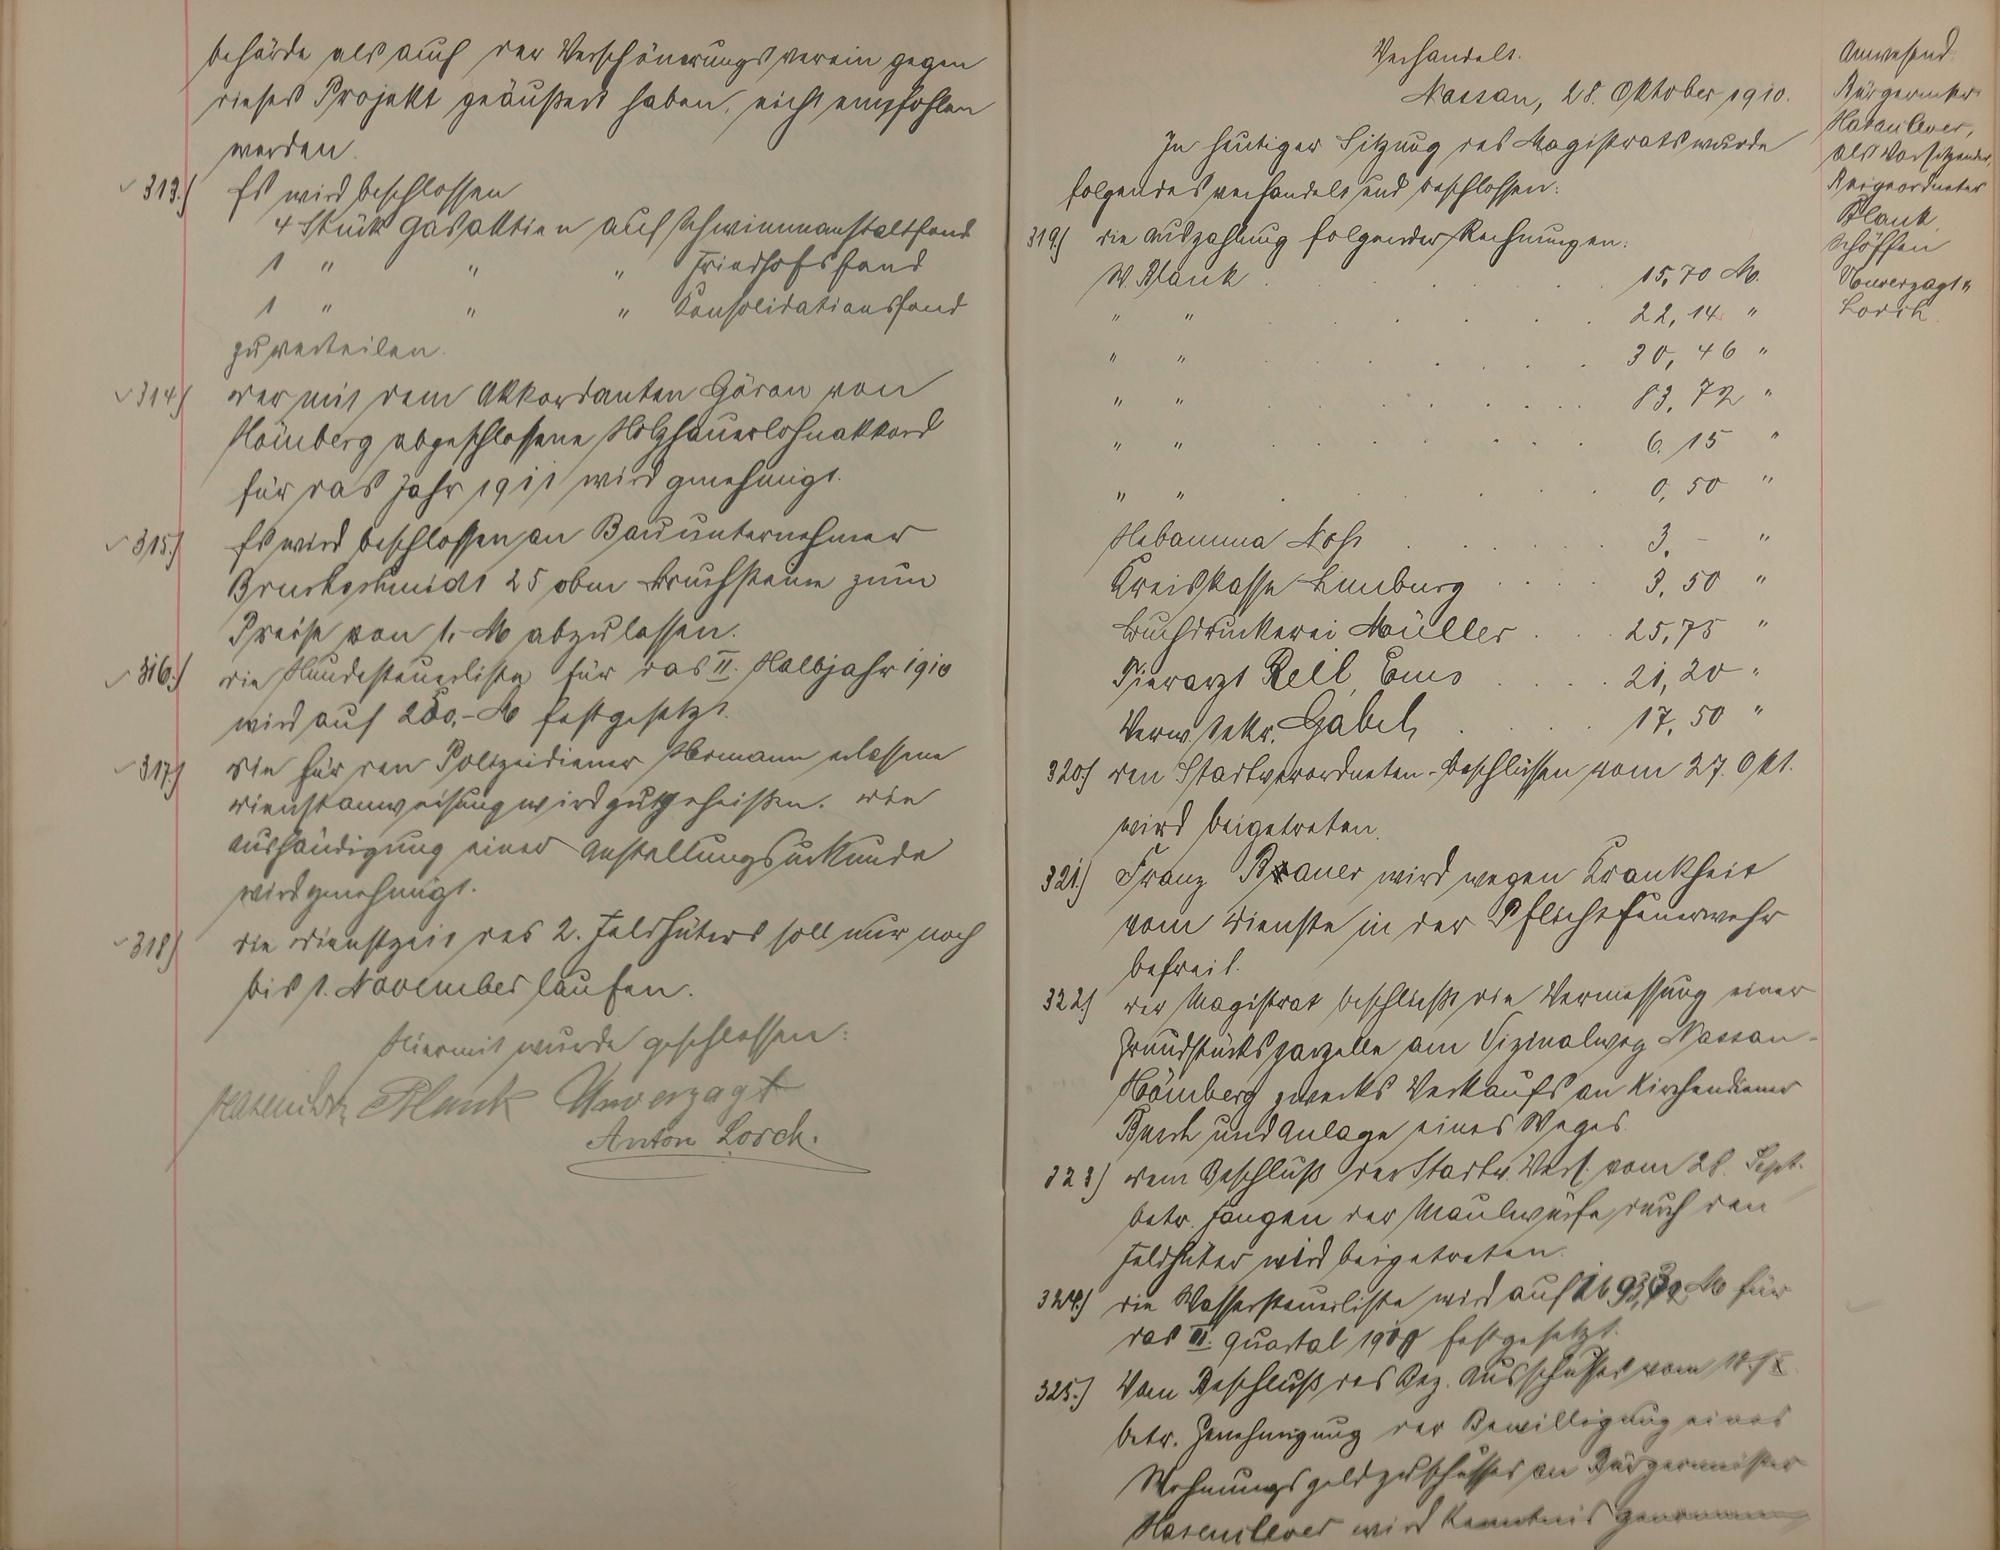 behörde als auch der Verschönerungsverein gegen
dieses Projekt geäußert haben, nicht empfohlen
werden.
313.) Es wird beschlossen
4 Stück Gasaktien auf Schwimmanstaltfond
1 " " " Friedhofsfond
1 " " " Consolidationsfond
zu verteilen.
314) Der mit dem Akkordanten von
Hömberg abgeschlossene Holzhauerlohnakkord
für das Jahr 1911 wird genehmigt.
315.) Es wird beschlossen an Bauunternehmer
25 cbm Bruchsteine zum
Preise von 1,- M abzulassen.
316.) die Hundesteuerliste für das II. Halbjahr 1910
wird auf 250,- M festgesetzt.
317.) Die für den Polizeidiener Hermann erlassene
Dienstanweisung wird gutgeheißen. Die
Aushändigung einer Anstellungsurkunde
wird genehmigt.
318) die Dienstzeit des 2. Feldhüters soll nur noch
bis 1. November laufen.
Hiermit wurde geschlossen:
Hasenclever Blank Unverzagt
Anton Lorch.
Verhandelt.
Nassau, 28. Oktober 1910.
In heutiger Sitzung des Magistrats wurde
folgendes verhandelt und beschlossen:
Anwesend:
Bürgermstr
Hasenclever,
als Vorsitzender,
Beigeordneter
Blank
Schöffen
Unverzagt u
Lorch.
319.) die Auszahlung folgender Rechnungen:
W. Blank 15,70 M.
" " 22,14 "
" " 30,46 "
" " 83,72 "
" " 6,15 "
" " 0,50 "
Hebamme 3,- "
Kreiskasse Limburg 3,50 "
Buchdruckerei Müller 25,75 "
Tierarzt Reil, Ems 21,20 "
Verw. Sekr. Gabel, 17,50 "
320.) den Stadtverordneten-Beschlüssen vom 27. Okt.
wird beigetreten.
321.) Franz wird wegen Krankheit
vom Dienste in der Pflichtfeuerwehr
befreit.
322.) der Magistrat beschließt die Vermessung einer
Grundstücksparzelle am Vizinalweg Nassau-
Hömberg zwecks Verkaufs an Kirchendiener
Busch und Anlage eines Weges.
323) dem Beschluß der Stadtv. Vers. vom 28. Sept.
betr. Fangen der Maulwürfe durch den
Feldhüter wird beigetreten.
324.) die Wassersteuerliste wird auf M für
das II. Quartal festgesetzt.
325.) Vom Beschluß des Bez. Ausschusses vom
betr. Genehmigung der Bewilligung eines
Wohnungsgeldzuschusses an Bürgermeister
Hasenclever wird Kenntnis genommen